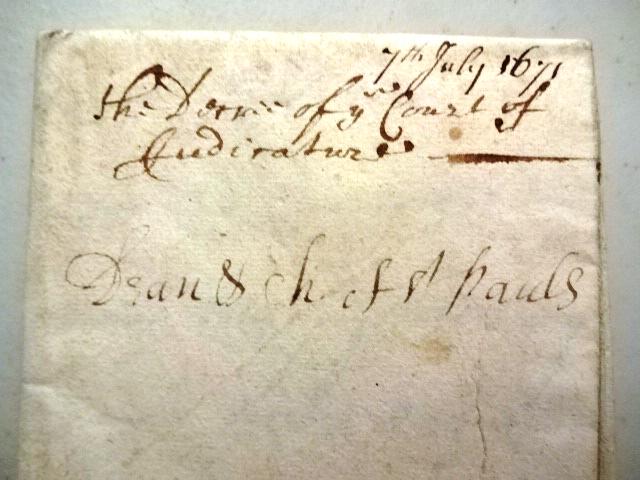 7th July 1671
the Decree of ye Court of
Judicature
Dean & Ch of St Pauls